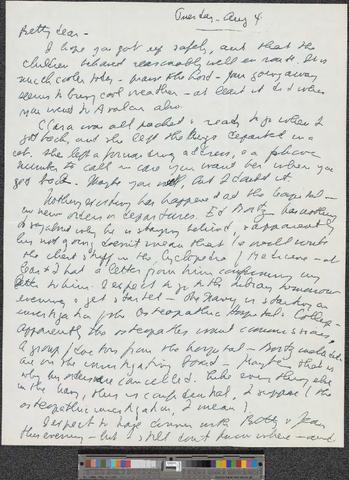 Tuesday - Aug 4
Betty dear -
I hope you got up safely, and that the
children behaved reasonably well en route. It is
much cooler today - praise the Lord - your going away
seems to bring cool weather - at least it did when
you went to Avalon also.
Clara was all packed & ready to go when I
got back, and she left the things departed in a
cab. She left a forwarding address, & a phone
number to call in case you want her when you
get back. Maybe you will, but I doubt it.
Nothing exciting has happened at the hospital -
no new orders or departures. Ed Bortz has nothing
why he is staying behind, & apparently
his not going doesn't mean that I would write
the chest stuff in the Cyclopedia of Medicine - at
least I had a letter from him confirming my
letter to him. I expect to go to the library tomorrow
evening & get started - the Navy is starting an
investigation of the Osteopathic Hospital & College -
apparently the osteopaths want commissions,
A group of doctors from the hospital - Bortz included -
are on the investigating board. Maybe that is
why his orders are cancelled. Like everything else
in the Navy, this is confidential, I suppose (the
osteopathic investigation, I mean).
I expect to have dinner with Betty & Jean
this evening - but I still don't know where - and